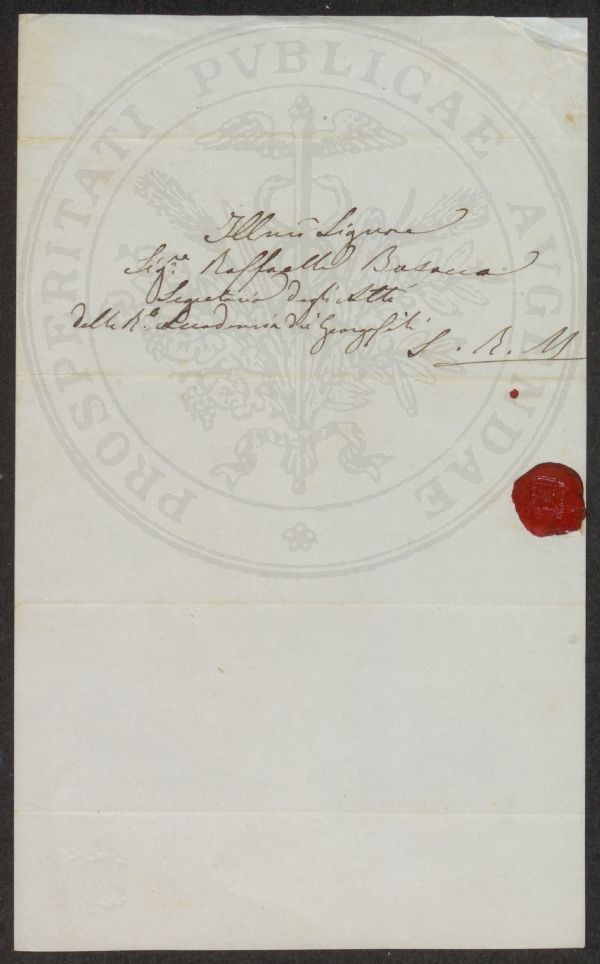 PROSPERITATI PVBLICAE AVGENDAE
Illmo Signore
Sigre. Raffaello Busacca
Segretario degli Atti
della Ra. Accademia dei Georgofili
S. R. M